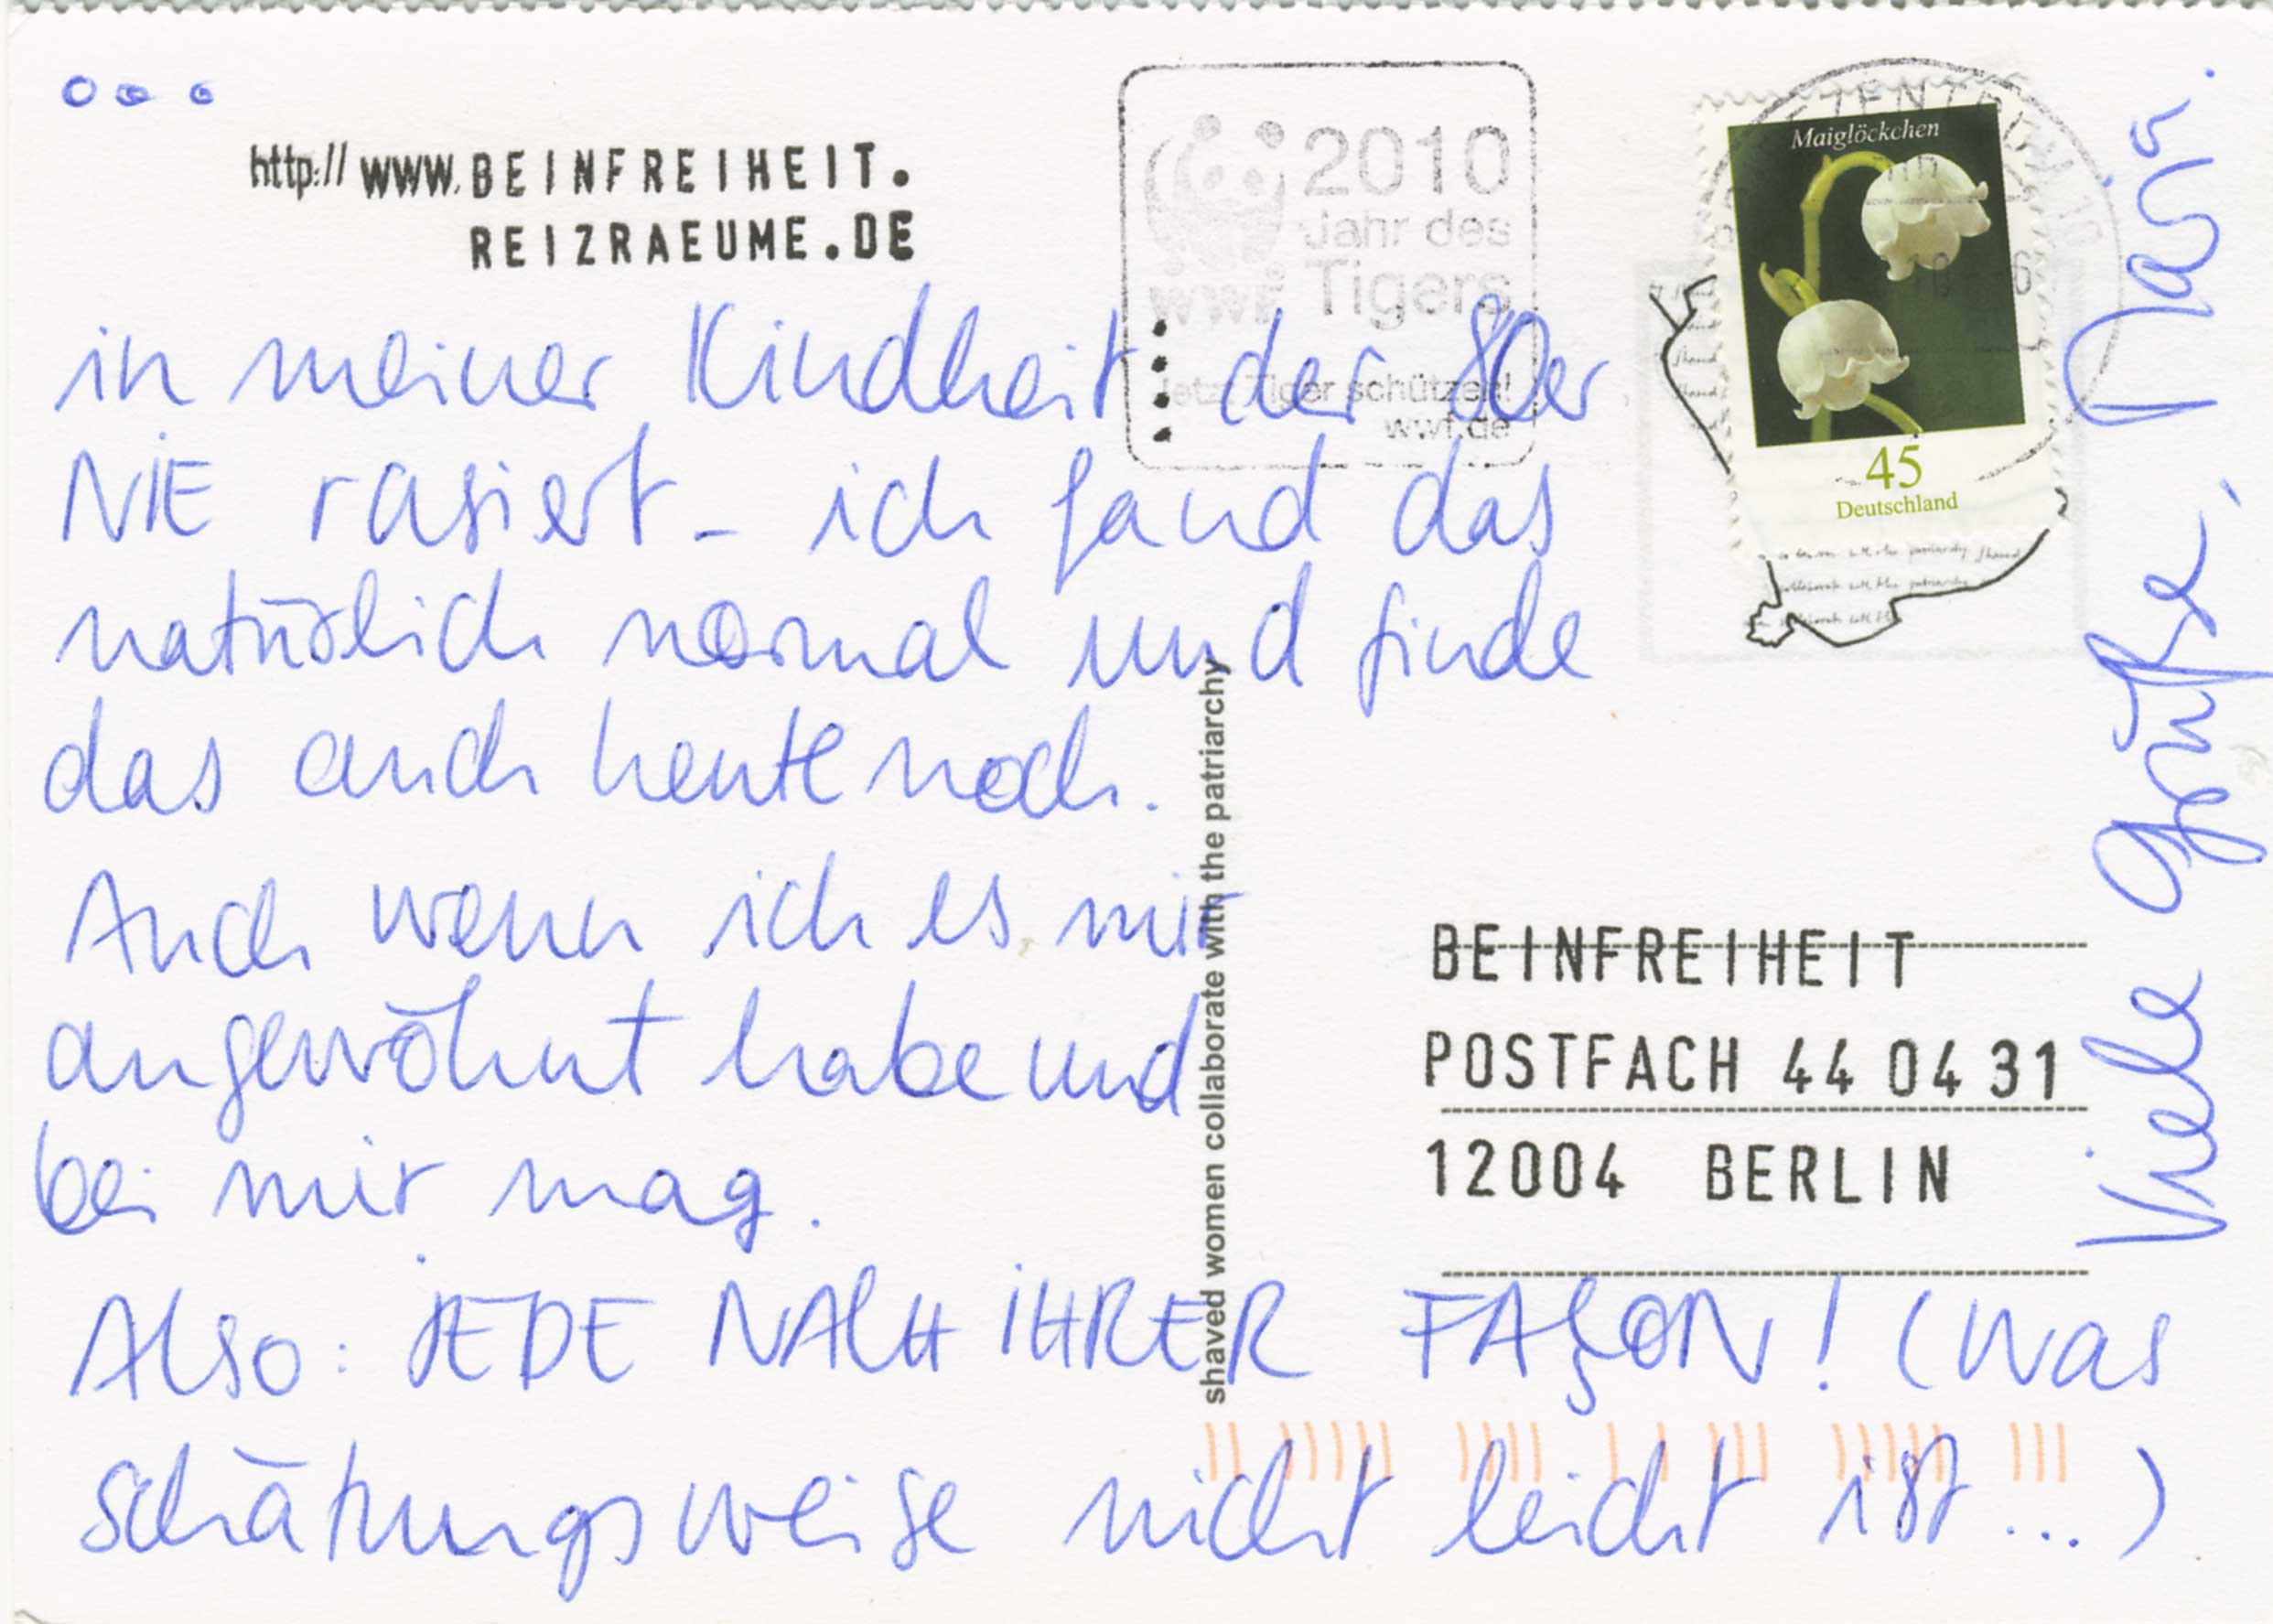 ...
http://www.BEINFREIHEIT.
REIZRAEUME.DE
2010
Jahr des
Tigers
WWF
Jetzt Tiger schützen!
wwf.de
Maiglöckchen
45
Deutschland
in meiner Kindheit der 80er
NIE rasiert - ich fand das
natürlich normal und finde
das auch heute noch.
Auch wenn ich es mir
angewöhnt habe und
bei mir mag.
Also: JEDE NACH IHRER FAÇON! (was
schätzungsweise nicht leicht ist...)
Viele Grüße,
shaved women collaborate with the patriarchy
BEINFREIHEIT
POSTFACH 44 04 31
12004 BERLIN